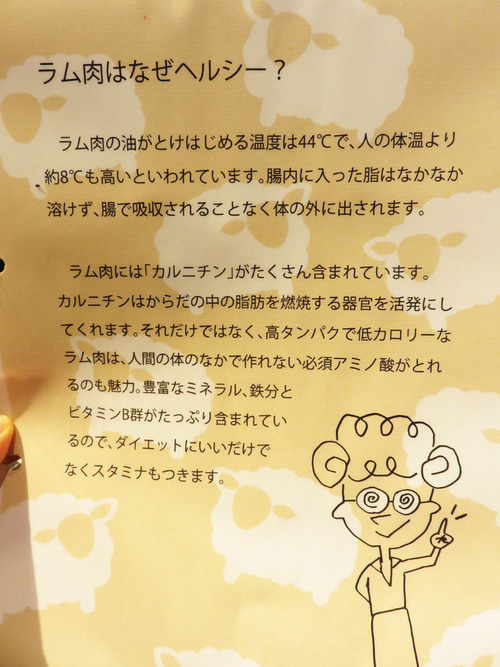 ラム肉はなぜヘルシー？
ラム肉の油がとけはじめる温度は44℃で、人の体温より
約8℃も高いといわれています。腸内に入った脂はなかなか
溶けず、腸で吸収されることなく体の外に出されます。
ラム肉には「カルニチン」がたくさん含まれています。
カルニチンはからだの中の脂肪を燃焼する器官を活発にし
てくれます。それだけではなく、高タンパクで低カロリーな
ラム肉は、人間の体のなかで作れない必須アミノ酸がとれ
るのも魅力。豊富なミネラル、鉄分と
ビタミンB群がたっぷり含まれてい
るので、ダイエットにいいだけで
なくスタミナもつきます。